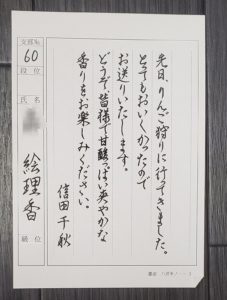 先日、りんご狩りに行ってきました。
とってもおいしかったので
お送りいたします。
どうぞ皆様で甘酸っぱい爽やかな
香りをお楽しみください。
信田千秋
支部No.
60
段位
氏名
絵理香
級位